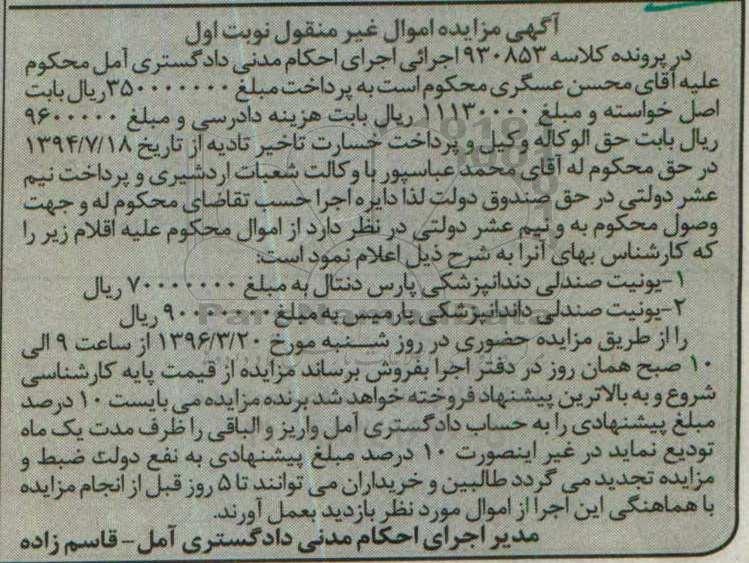 آگهی مزایده اموال غیر منقول نوبت اول
در پرونده کلاسه ۹۳۰۸۵۳ اجرائی اجرای احکام مدنی دادگستری آمل محکوم
علیه آقای محسن عسگری محکوم است به پرداخت مبلغ ۳۵۰۰۰۰۰۰۰ ریال بابت
اصل خواسته و مبلغ ۱۱۱۳۰۰۰۰ ریال بابت هزینه دادرسی و مبلغ ۹۶۰۰۰۰۰
ریال بابت حق الوکاله وکیل و پرداخت خسارت تاخیر تادیه از تاریخ ۱۳۹۴/۷/۱۸
در حق محکوم له آقای محمد عباسپور با وکالت شعبات اردشیری و پرداخت نیم
عشر دولتی در حق صندوق دولت لذا دایره اجرا حسب تقاضای محکوم له و جهت
وصول محکوم به و نیم عشر دولتی در نظر دارد از اموال محکوم علیه اقلام زیر را
که کارشناس بهای آنرا به شرح ذیل اعلام نمود است:
۱-یونیت صندلی دندانپزشکی پارس دنتال به مبلغ ۷۰۰۰۰۰۰۰ ریال
۲-یونیت صندلی داندانپزشکی پارمیس به مبلغ ۹۰۰۰۰۰۰۰ ریال
را از طریق مزایده حضوری در روز شنبه مورخ ۱۳۹۶/۳/۲۰ از ساعت ۹ الی
۱۰ صبح همان روز در دفتر اجرا بفروش برساند مزایده از قیمت پایه کارشناسی
شروع و به بالاترین پیشنهاد فروخته خواهد شد برنده مزایده می بایست ۱۰ درصد
مبلغ پیشنهادی را به حساب دادگستری آمل واریز و الباقی را ظرف مدت یک ماه
تودیع نماید در غیر اینصورت ۱۰ درصد مبلغ پیشنهادی به نفع دولت ضبط و
مزایده تجدید می گردد طالبین و خریداران می توانند تا ۵ روز قبل از انجام مزایده
با هماهنگی این اجرا از اموال مورد نظر بازدید بعمل آورند.
مدیر اجرای احکام مدنی دادگستری آمل- قاسم زاده